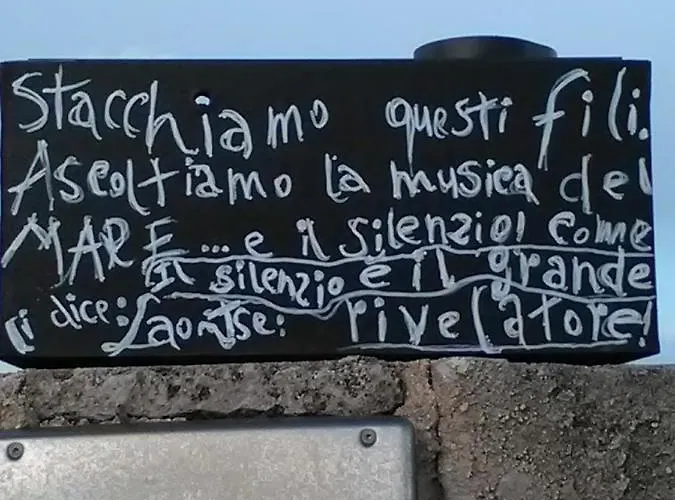 Stacchiamo questi fili.
Ascoltiamo la musica del
MARE... e il silenzio! come
Il silenzio è il grande
ci dice: Laontse: rivelatore!